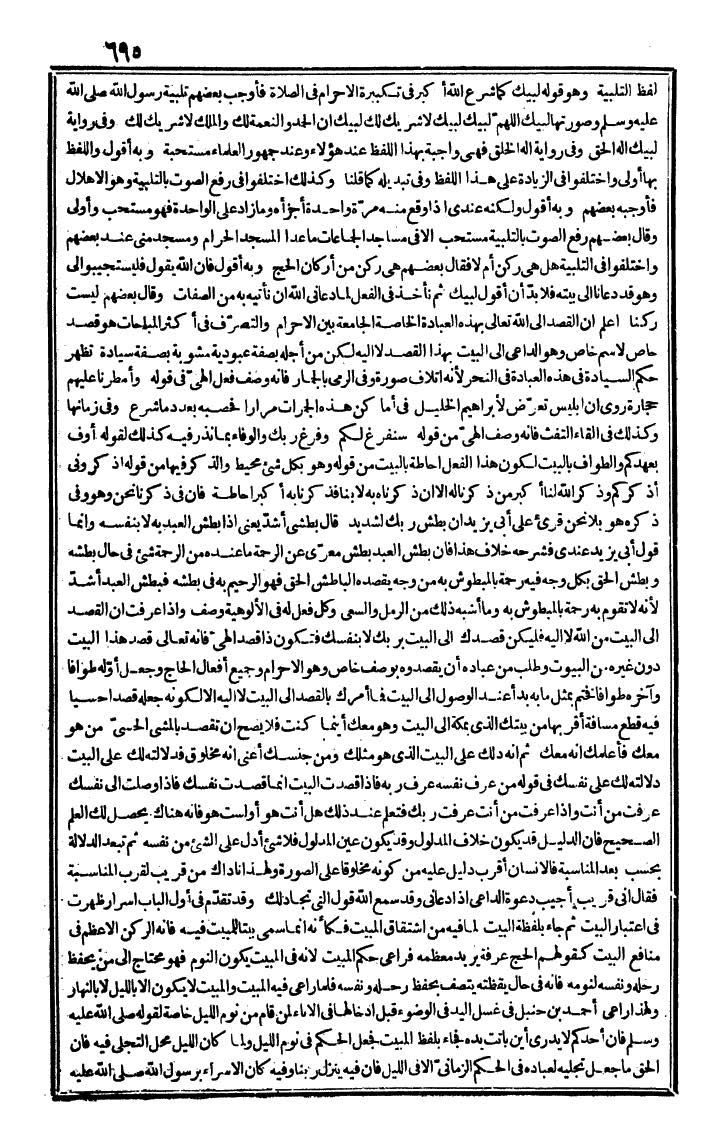 ٦٩٥
لفظ التلبية وهو قوله لبيك كما شرع الله أكبر فى تكبيرة الاحرام فى الصلاة فأوجب بعضهم تلبية رسول الله صلى الله
عليه وسلم وصورتها لبيك اللهم لبيك لبيك لا شريك لك لبيك ان الحمد والنعمة لك والملك لا شريك لك وفى رواية
لبيك اله الحق وفى رواية اله الخلق فهى واجبة بهذا اللفظ عند هؤلاء وعند جمهور العلماء مستحبة وبه أقول واللفظ
بها أولى واختلفوا فى الزيادة على هذا اللفظ وفى تبديله كما قلنا وكذلك اختلفوا فى رفع الصوت بالتلبية وهو الاهلال
فأوجبه بعضهم وبه أقول ولكنه عندى اذا وقع منه مرّة واحدة أجزأه وما زاد على الواحدة فهو مستحب وأولى
وقال بعضهم رفع الصوت بالتلبية مستحب الا فى مساجد الجماعات ماعدا المسجد الحرام ومسجد منى عند بعضهم
واختلفوا فى التلبية هل هى ركن أم لا فقال بعضهم هى ركن من أركان الحج وبه أقول فان الله يقول فليستجيبوا لى
وهو قد دعانا الى بيته فلا بدّ أن أقول لبيك ثم نأخذ فى الفعل لما دعانى الله ان نأتيه به من الصفات وقال بعضهم ليست
ركنا اعلم ان القصد الى الله تعالى بهذه العبادة الخاصة الجامعة بين الاحرام والتصرّف فى أكثر المباحات هو قصد
خاص لاسم خاص وهو الداعى الى البيت بهذا القصد لا اليه لكن من أجله بصفة عبودية مشوبة بصفة سيادة تظهر
حكم السيادة فى هذه العبادة فى النحر لأنه اتلاف صورة وفى الرمى بالجمار فانه وصف فعل الهىّ فى قوله وأمطرنا عليهم
حجارة روى ان ابليس تعرّض لأبراهيم الخليل فى أماكن هذه الجمرات مرارا فحصبه بعدد ما شرع وفى زمانها
وكذلك فى القاء التفث فانه وصف الهىّ من قوله سنفرغ لكم وفرغ ربك والوفاء بما نذر فيه كذلك لقوله أوف
بعهدكم والطواف بالبيت لكون هذا الفعل احاطة بالبيت من قوله وهو بكل شئ محيط والذكر فيها من قوله اذكرونى
أذكركم وذكر الله لنا أكبر من ذكرنا له الا ان ذكرناه به لا بنا فذكرنا به أكبر احاطة فان فى ذكرنا نحن وهو وفى
ذكره هو بلا نحن قرئ على أبى يزيد ان بطش ربك لشديد قال بطشى أشدّ يعنى اذا بطش العبد به لا بنفسه وانما
قول أبى يزيد عندى فشرحه خلاف هذا فان بطش العبد بطش معرّى عن الرحمة ما عنده من الرحمة شئ فى حال بطشه
وبطش الحق بكل وجه فيه رحمة بالمبطوش به من وجه يقصده الباطش الحق فهو الرحيم به فى بطشه فبطش العبد أشدّ
لأنه لا تقوم به رحمة بالمبطوش به وما أشبه ذلك من الرمل والسعى وكل فعل له فى الألوهية وصف واذا عرفت ان القصد
الى البيت من الله لا اليه فليكن قصدك الى البيت بربك لا بنفسك فتكون ذا قصد الهىّ فانه تعالى قصد هذا البيت
دون غيره من البيوت وطلب من عباده أن يقصدوه بوصف خاص وهو الاحرام وجميع أفعال الحاج وجعل أوّله طوافا
وآخره طوافا فختم بمثل ما به بدأ عند الوصول الى البيت فما أمرك بالقصد الى البيت لا اليه الا لكونه جعله قصدا حسيا
فيه قطع مسافة أقربها من بيتك الذى بمكة الى البيت وهو معك أينما كنت فلا يصح ان تقصد بالمشى الحسىّ من هو
معك فأعلمك انه معك ثم انه دلك على البيت الذى هو مثلك ومن جنسك أعنى انه مخلوق فدلالته لك على البيت
دلالته لك على نفسك فى قوله من عرف نفسه عرف ربه فاذا قصدت البيت انما قصدت نفسك فاذا وصلت الى نفسك
عرفت من أنت واذا عرفت من أنت عرفت ربك فتعلم عند ذلك هل أنت هو أو لست هو فانه هناك يحصل لك العلم
الصحيح فان الدليل قد يكون خلاف المدلول وقد يكون عين المدلول فلا شئ أدل على الشئ من نفسه ثم تبعد الدلالة
بحسب بعد المناسبة فالانسان أقرب دليل عليه من كونه مخلوقا على الصورة ولهذا ناداك من قريب لقرب المناسبة
فقال انى قريب أجيب دعوة الداعى اذا دعانى وقد سمع الله قول التى تجادلك وقد تقدّم فى أول الباب اسرار ظهرت
فى اعتبار البيت ثم جاء بلفظة البيت لما فيه من اشتقاق المبيت فكأنه انما سمى بيتا للمبيت فيه فانه الركن الاعظم فى
منافع البيت كقولهم الحج عرفة يريد معظمه فراعى حكم المبيت لانه فى المبيت يكون النوم فهو محتاج الى من يحفظ
رحله ونفسه لنومه فانه فى حال يقظته يتصف بحفظ رحله ونفسه فلما راعى فيه المبيت والمبيت لا يكون الا بالليل لا بالنهار
ولهذا راعى أحمد بن حنبل فى غسل اليد فى الوضوء قبل ادخالها فى الاناء لمن قام من نوم الليل خاصة لقوله صلى الله عليه
وسلم فان أحدكم لا يدرى أين باتت يده فجاء بلفظ المبيت فجعل الحكم فى نوم الليل ولما كان الليل محل التجلى فيه فان
الحق ما جعل تجليه لعباده فى الحكم الزمانىّ الا فى الليل فان فيه ينزل ربنا وفيه كان الاسراء برسول الله صلى الله عليه